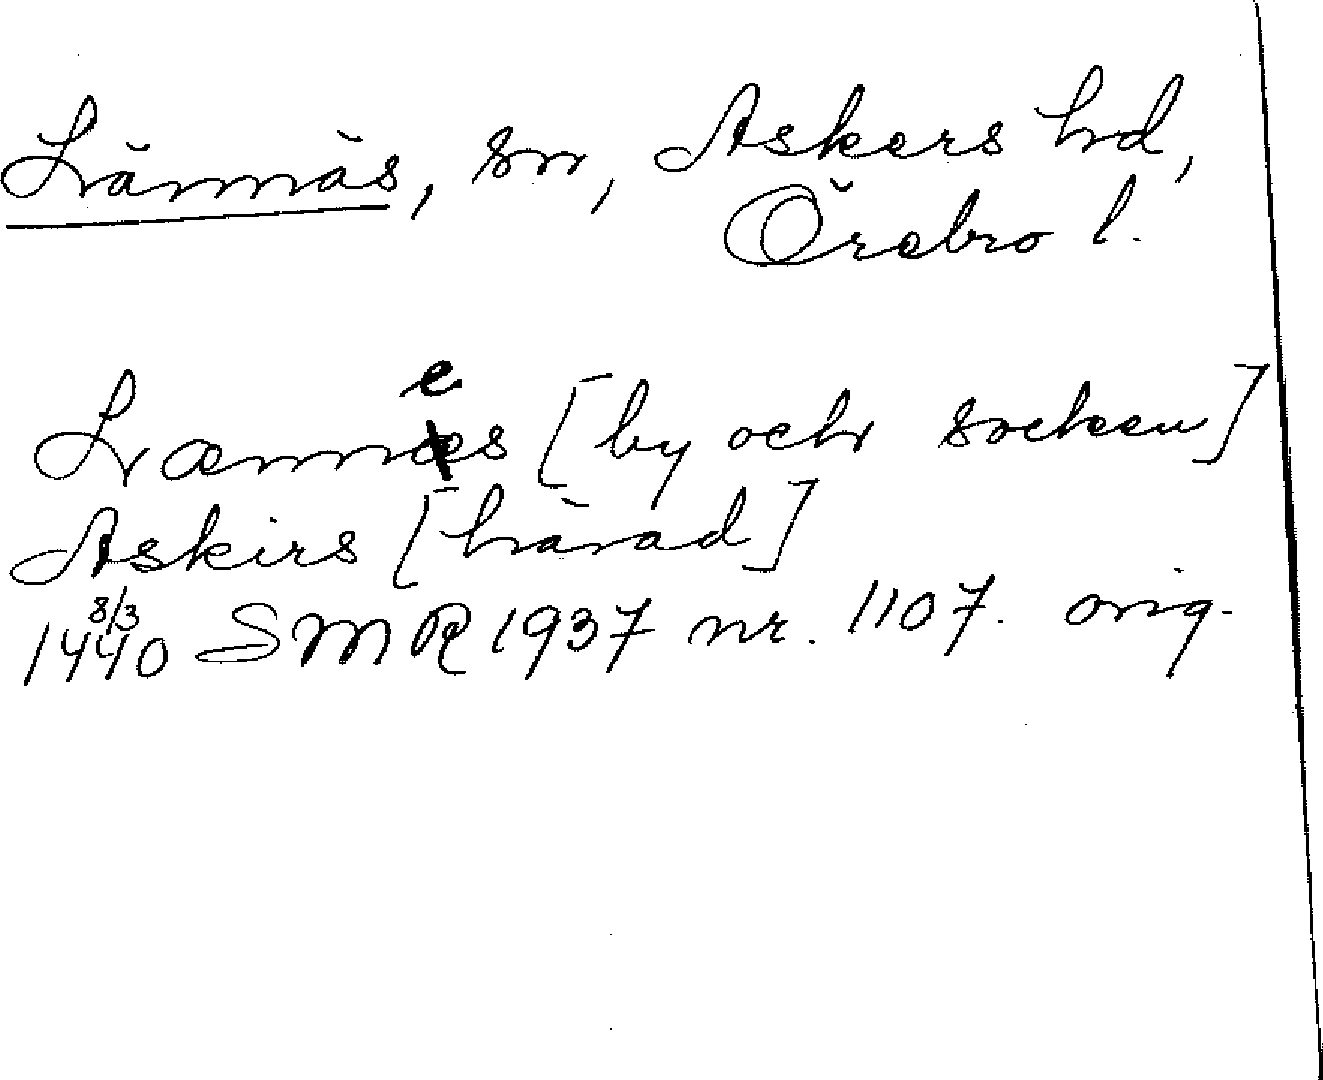 Lännäs, sn, Askers hd,
Örebro l.
Lænnes [by och socken]
Askirs [härad]
1440 8/3 SMR 1937 nr. 1107. orig.